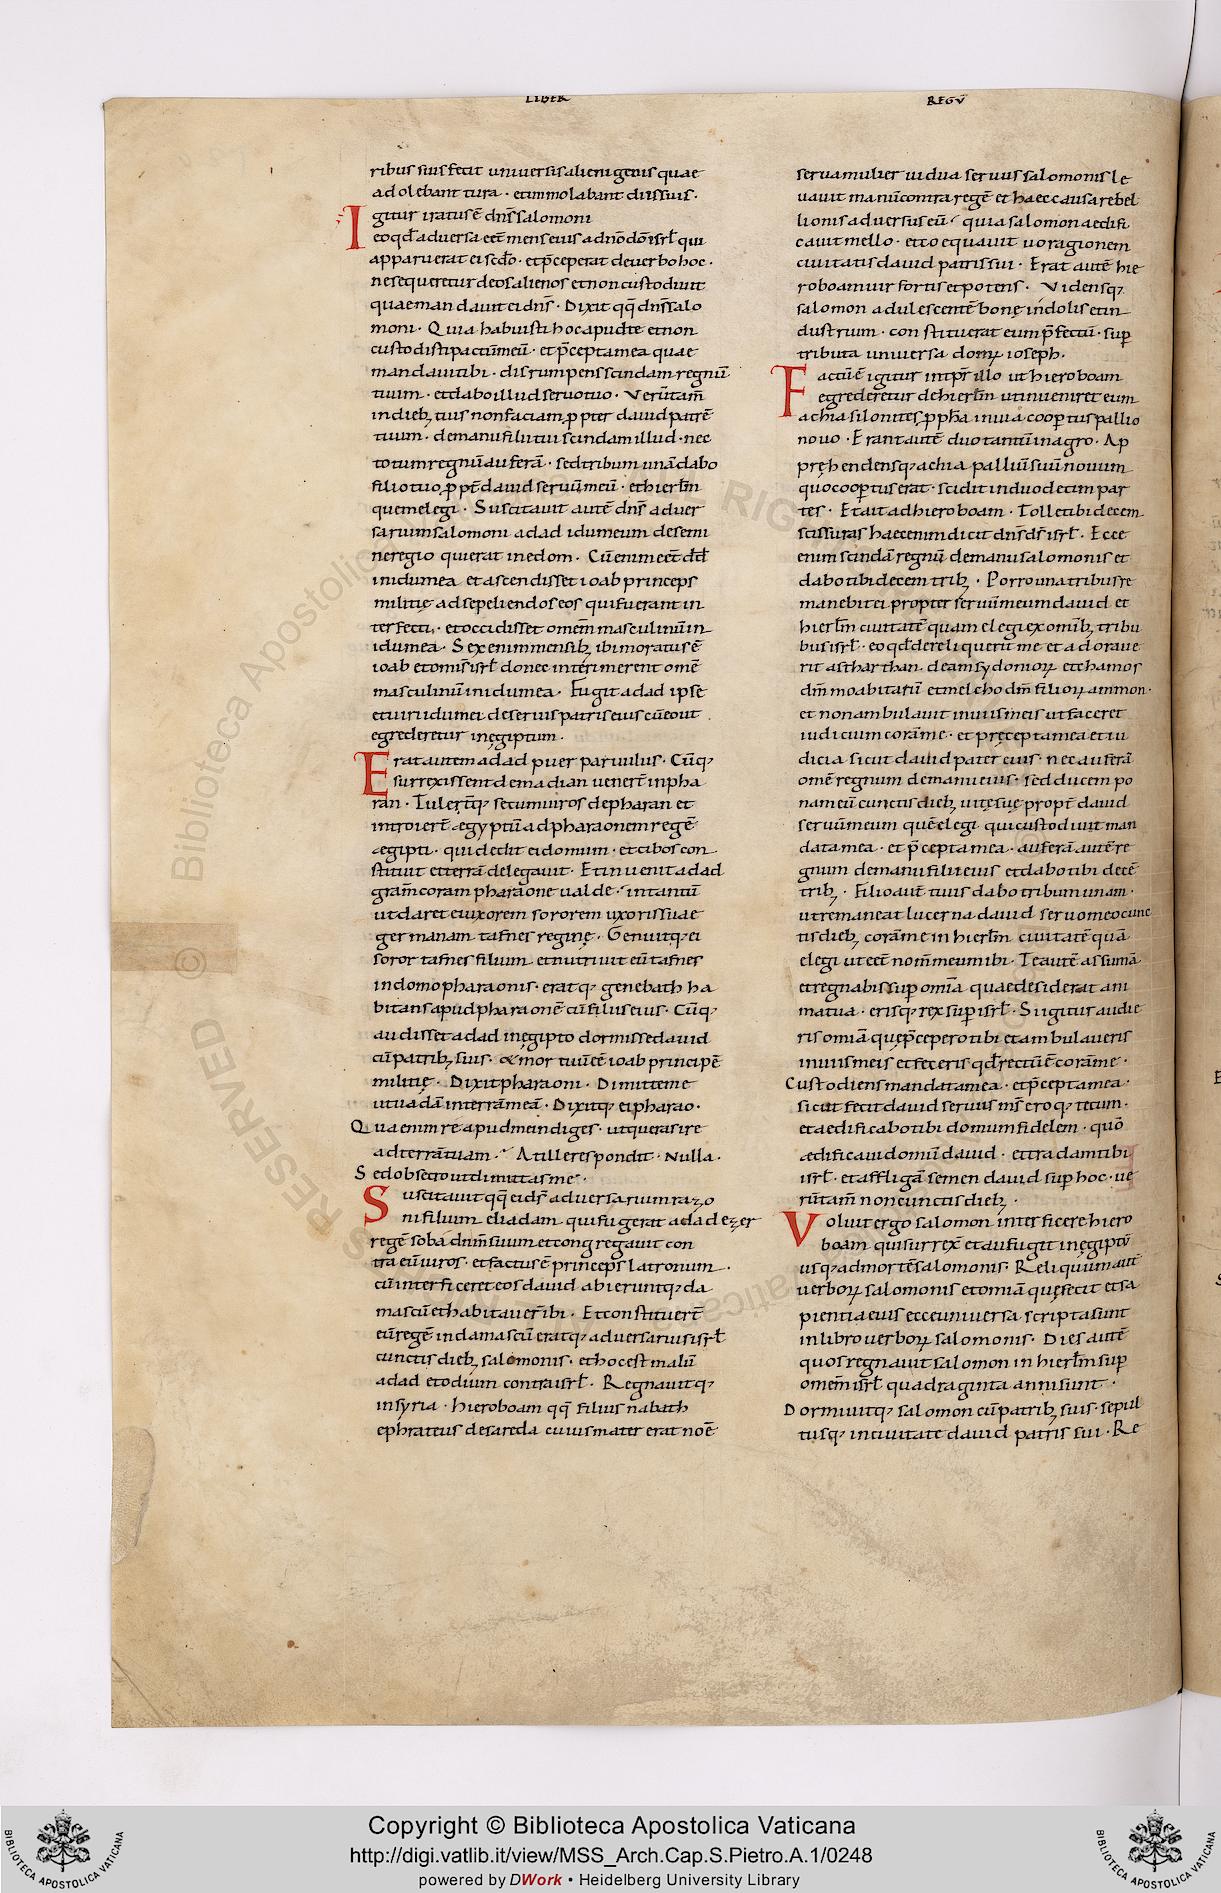 LIBER
REGṼ
ribus suis fecit universis alienigenis quae
adolebant tura · et immolabant diis suis ·
Igitur iratus ẽ dñs salomoni
eo qđ aduersa eẽt mens eius a dño dõ isrł qui
apparuerat ei scđo · et p̃ceperat de uerbo hoc ·
ne sequeretur deos alienos et non custodiuit
quae mandauit ei dñs · Dixit qq̃ dñs salo
moni · Quia habuisti hoc apud te et non
custodisti pactũ meũ · et p̃cepta mea quae
mandaui tibi · disrumpens scindam regnũ
tuum · et dabo illud seruo tuo · Verũtam̃
in dieb; tuis non faciam ꝓpter dauid patrẽ
tuum · de manu filii tui scindam illud · nec
totum regnũ auferã · sed tribum unã dabo
filio tuo ꝓpt̃ dauid seruũ meũ · et hierłm
quem elegi · Suscitauit autẽ dñs aduer
sarium salomoni adad idumeum de semi
ne regio qui erat in edom · Cũ enim eẽt dđ
in idumea et ascendisset ioab princeps
militię ad sepeliendos eos qui fuerant in
terfecti · et occidisset omem̃ masculinũ in
idumea · Sex enim mensib; ibi moratus ẽ
ioab et omis̃ isrł donec interimerent omẽ
masculinũ in idumea · Fugit adad ipse
et uiri idumei de seruis patris eius cũ eo ut
egrederetur in ęgiptum ·
Erat autem adad puer paruulus · Cũq;
surrexissent de madian venert̃ in pha
ran · Tulert̃q; secum uiros de pharan et
introiert̃ ægyptũ ad pharaonem regẽ
ægipti · qui dedit ei domum · et cibos con
stituit et terrã delegauit · Et inuenit adad
gram̃ coram pharaone ualde · in tantũ
ut daret ei uxorem sororem uxoris suae
germanam tafnes reginę · Genuitq; ei
soror tafnes filium et nutriuit eũ tafnes
in domo pharaonis · eratq; genebath ha
bitans apud pharaonẽ cũ filiis eius · Cũq;
audisset adad in ęgipto dormisse dauid
cũ patrib; suis · & mortuũ eẽ ioab principẽ
militię · Dixit pharaoni · Dimitte me
ut uadã in terrã meã · Dixitq; ei pharao ·
Qua enim re apud me indiges · ut queras ire
ad terrã tuam · At ille respondit · Nulla ·
Sed obsecro ut dimittas me ·
Suscitauit qq̃ ei ds̃ aduersarium razo
ni filium eliadam qui fugerat adadezer
regẽ soba dnm̃ suum et congregauit con
tra eũ uiros · et factus ẽ princeps latronum ·
cũ interficeret eos dauid abieruntq; da
mascũ et habitauert̃ ibi · Et constituert̃
eũ regẽ in damascũ eratq; aduersarius isrł
cunctis dieb; salomonis · et hoc est malũ
adad et odium contra isrł · Regnauitq;
in syria · hieroboam qq̃ filius nabath
ephrateus de sareda cuius mater erat noẽ
serua mulier uidua seruus salomonis le
uauit manũ contra regẽ et haec causa rebel
lionis aduersus eũ · quia salomon aedifi
cauit mello · et coequauit uoragionem
ciuitatis dauid patris sui · Erat autẽ hie
roboam uir fortis et potens · Vidensq;
salomon adulescentẽ bonę indolis et in
dustrum · constituerat eum p̃fectũ · sup̃
tributa uniuersa domꝰ ioseph ·
Factũ ẽ igitur in tpr̃ illo ut hieroboam
egrederetur de hierłm ut inueniret eum
achia silonites ꝓpħa in uia coop̃tus pallio
nouo · Erant autẽ duo tantũ in agro · Ap
pręhendensq; achia palliũ suũ nouum
quo coop̃tus erat · scidit in duodecim par
tes · Et ait ad hieroboam · Tolle tibi decem
scissuras haec enim dicit dñs ds̃ isrł · Ecce
enim scindã regnũ de manu salomonis et
dabo tibi decem trib; · Porro una tribus re
manebit ei propter seruũ meum dauid et
hierłm ciuitatẽ quam elegi ex omĩb; tribu
bus isrł · eo qđ dereliquerit me et adoraue
rit astharthan deam sydonioꝝ et chamos
dm̃ moabitarũ et melcho dm̃ filioꝝ ammon ·
et non ambulauit in uiis meis ut faceret
iudicium corã me · et pręcepta mea et iu
dicia sicut dauid pater eius · nec auferã
omẽ regnum de manu eius · sed ducem po
nam eũ cunctis dieb; uitę suę propt̃ dauid
seruũ meum quẽ elegi qui custodiuit man
data mea · et p̃cepta mea · auferã autẽ re
gnum de manu filii eius et dabo tibi decẽ
trib; · Filio autẽ tuis dabo tribum unam ·
ut remaneat lucerna dauid seruo meo cunc
tis dieb; corã me in hierłm ciuitatẽ quã
elegi ut eẽt nom̃ meum ibi · Te autẽ assumã
et regnabis sup̃ omĩa quae desiderat ani
ma tua · erisq; rex sup̃ isrł · Si igitur audie
ris omĩa quę p̃cepero tibi et ambulaueris
in uiis meis et feceris qđ rectũ ẽ corã me ·
Custodiens mandata mea · et p̃cepta mea ·
sicut fecit dauid seruus ms̃ ero q; tecum ·
et aedificabo tibi domum fidelem · quõ
ædificaui domũ dauid · et tradam tibi
isrł · et affligã semen dauid sup̃ hoc · ue
rũtam̃ non cunctis dieb; ·
Voluit ergo salomon interficere hiero
boam qui surrex̃ et aufugit in ęgiptũ
usq; ad mortẽ salomonis · Reliquum aut̃
uerboꝝ salomonis et omĩa quę fecit et sa
pientia eius ecce uniuersa scripta sunt
in libro uerboꝝ salomonis · Dies autẽ
quos regnauit salomon in hierłm sup̃
omem̃ isrł quadraginta anni sunt ·
Dormiuitq; salomon cũ patrib; suis · sepul
tusq; in ciuitate dauid patris sui · Re
Copyright © Biblioteca Apostolica Vaticana
http://digi.vatlib.it/view/MSS_Arch.Cap.S.Pietro.A.1/0248
powered by DWork • Heidelberg University Library
BIBLIOTECA APOSTOLICA VATICANA
BIBLIOTECA APOSTOLICA VATICANA